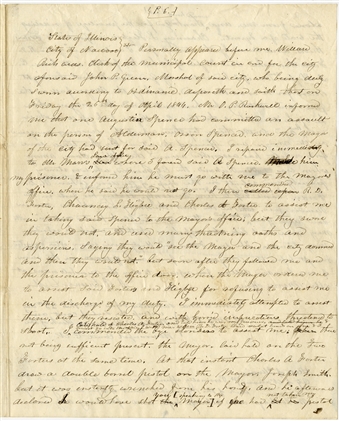 (P. C.)
State of Illinois
City of Nauvoo Personally appeared before me, Willard
Richards, Clerk of the municipal court in and for the city
aforesaid John P. Green, Marshal of said city, who being duly
sworn according to Ordinance deposeth and saith that on
Friday the 26th day of April 1844. Mr. O. P. Rockwell informed
me that one Augustine Spencer had committed an assault
on the person of Alderman, Orson Spencer, and the Mayor
of the city had sent for said A Spencer. I repaired immediately
to Mr Marrs, where I found said A Spencer, him
my prisoner. & informed him he must go with me to the mayor's
office, when he said he would not go. I then called upon R. D.
Foster, Chauncey L. Higbee and Charles A Foster to assist me
in taking said Spencer to the Mayors office, but they swore
they would not, and used many threatening oaths and
aspersions. Saying they would see the Mayor and the city damned
and then they would not. but soon after they followed me and
the prisoner to the office door, when the Mayor ordered me
to arrest said Fosters and Higbee for refusing to assist me
in the discharge of my duty, I immediately attempted to arrest
them, but they resisted and with horrid imprecations threatened to
shoot. I to assist me, &
not being sufficient present, the Mayor laid hold on the two
Fosters at the same time. At that instant Charles A. Foster
drew a double barrel pistol on the Mayor, Joseph Smith,
but it was instantly wrenched from his hand, and he afterwards
declared he would have shot the Mayor, if he had his pistol